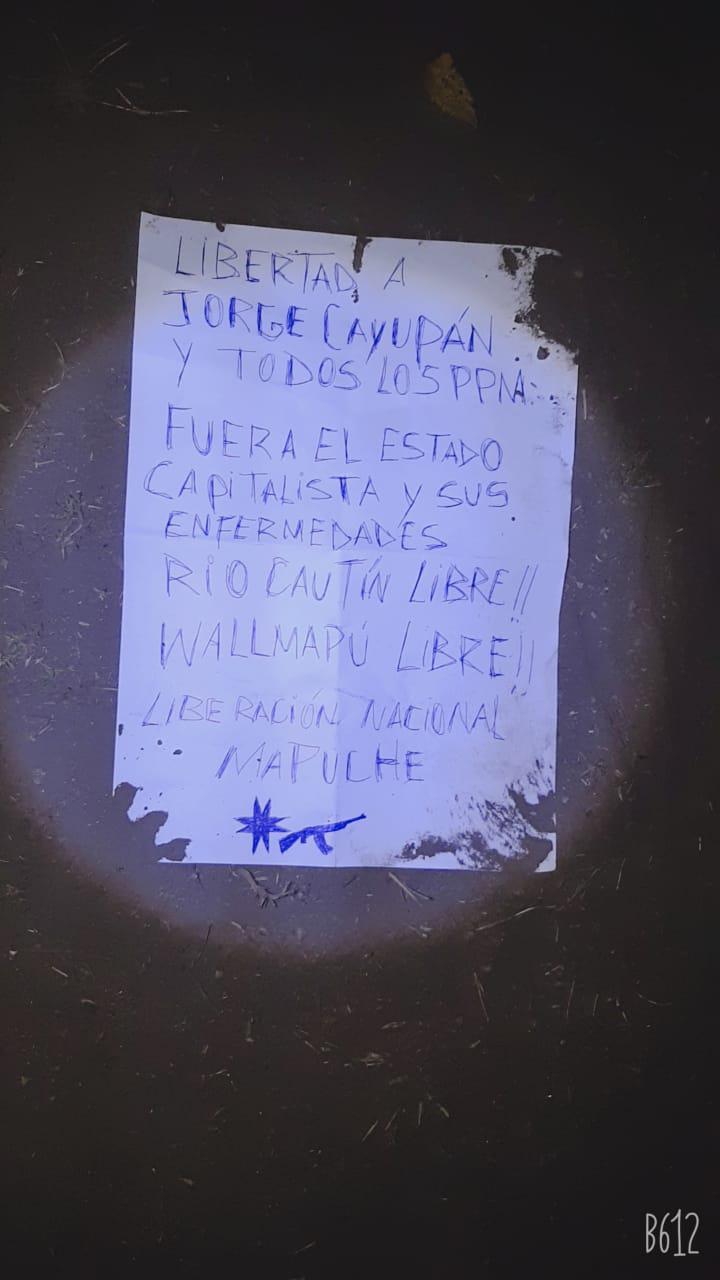 LIBERTAD A
JORGE CAYUPÁN
Y TODOS LOS PPM.
FUERA EL ESTADO
CAPITALISTA Y SUS
ENFERMEDADES
RIO CAUTÍN LIBRE!!
WALLMAPÚ LIBRE!!
LIBERACIÓN NACIONAL
MAPUCHE
B612